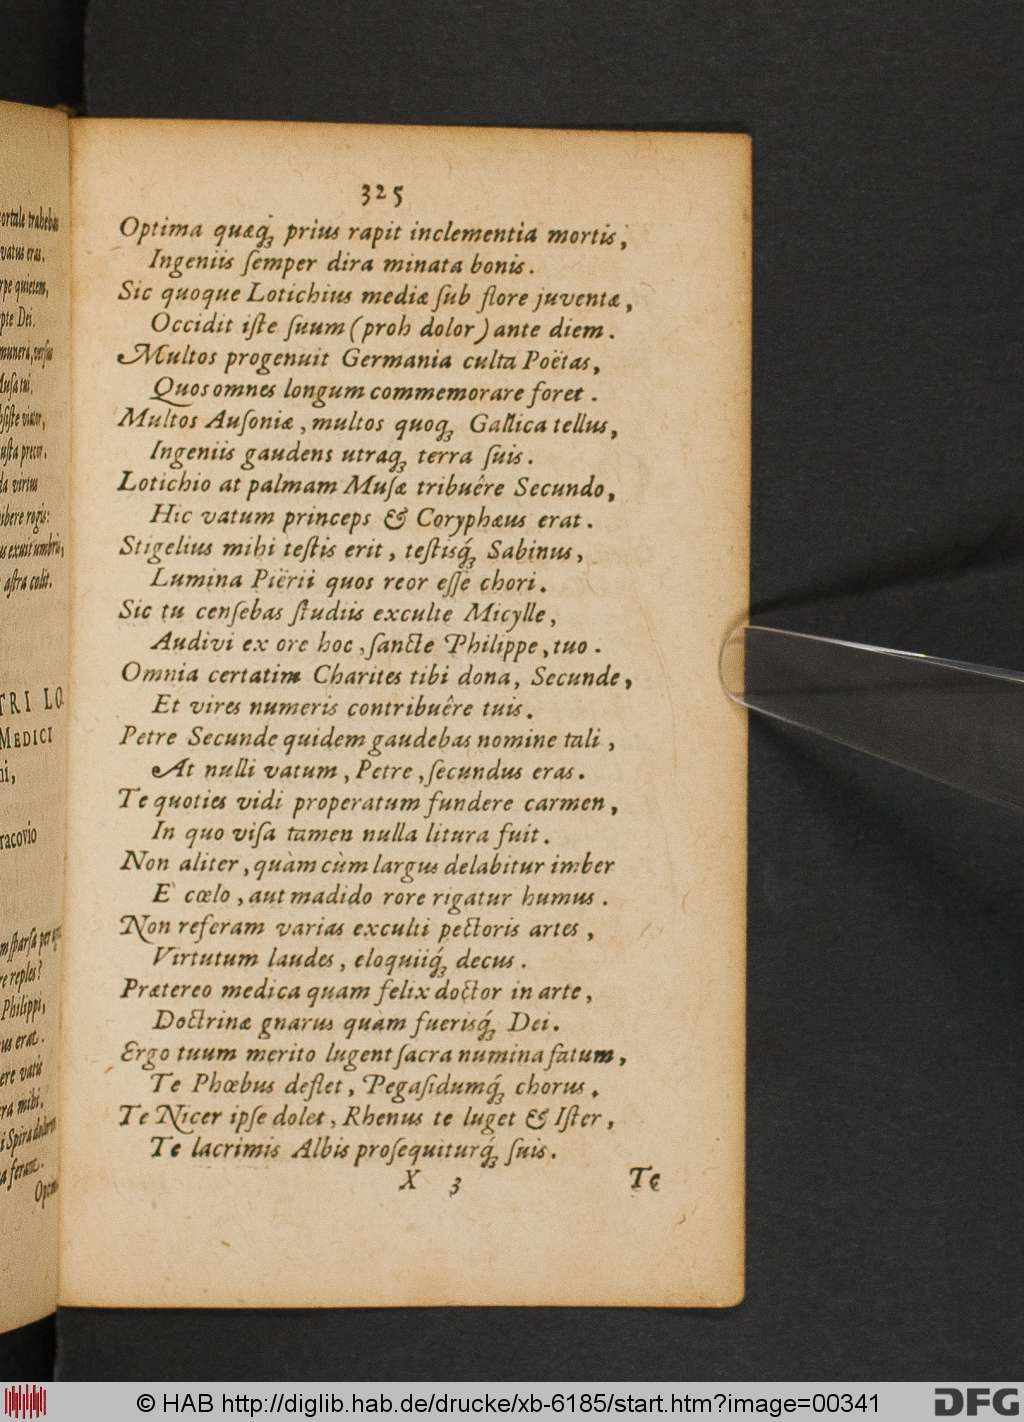 ortale trahebas
vatus eras.
rpe quietem,
pte Dei.
munera, versus
Musa tui.
bsiste viator,
usta precor.
da virtus
ibere rogis:
us exuit umbris,
astra colit.
TRI LO
MEDICI
ni,
racovio
re reples?
Philippi,
us erat.
ere vatis
ra mihi.
a ferant.
325
Optima quæq́; prius rapit inclementia mortis,
Ingeniis ſemper dira minata bonis.
Sic quoque Lotichius mediæ ſub flore juventæ,
Occidit iſte ſuum (proh dolor) ante diem.
Multos progenuit Germania culta Poëtas,
Quos omnes longum commemorare foret.
Multos Auſoniæ, multos quoq; Gallica tellus,
Ingeniis gaudens utraq; terra ſuis.
Lotichio at palmam Muſæ tribuêre Secundo,
Hic vatum princeps & Coryphæus erat.
Stigelius mihi teſtis erit, teſtisq́; Sabinus,
Lumina Piërii quos reor eſſe chori.
Sic tu cenſebas ſtudiis exculte Micylle,
Audivi ex ore hoc, ſancte Philippe, tuo.
Omnia certatim Charites tibi dona, Secunde,
Et vires numeris contribuêre tuis.
Petre Secunde quidem gaudebas nomine tali,
At nulli vatum, Petre, ſecundus eras.
Te quoties vidi properatum fundere carmen,
In quo viſa tamen nulla litura fuit.
Non aliter, quàm cùm largus delabitur imber
E cœlo, aut madido rore rigatur humus.
Non referam varias exculti pectoris artes,
Virtutum laudes, eloquiiq́; decus.
Prætereo medica quam felix doctor in arte,
Doctrinæ gnarus quàm fuerisq́; Dei.
Ergo tuum merito lugent ſacra numina fatum,
Te Phœbus deflet, Pegaſidumq́; chorus.
Te Nicer ipſe dolet, Rhenus te luget & Iſter,
Te lacrimis Albis proſequiturq́; ſuis.
X 3 Te
© HAB http://diglib.hab.de/drucke/xb-6185/start.htm?image=00341
DFG